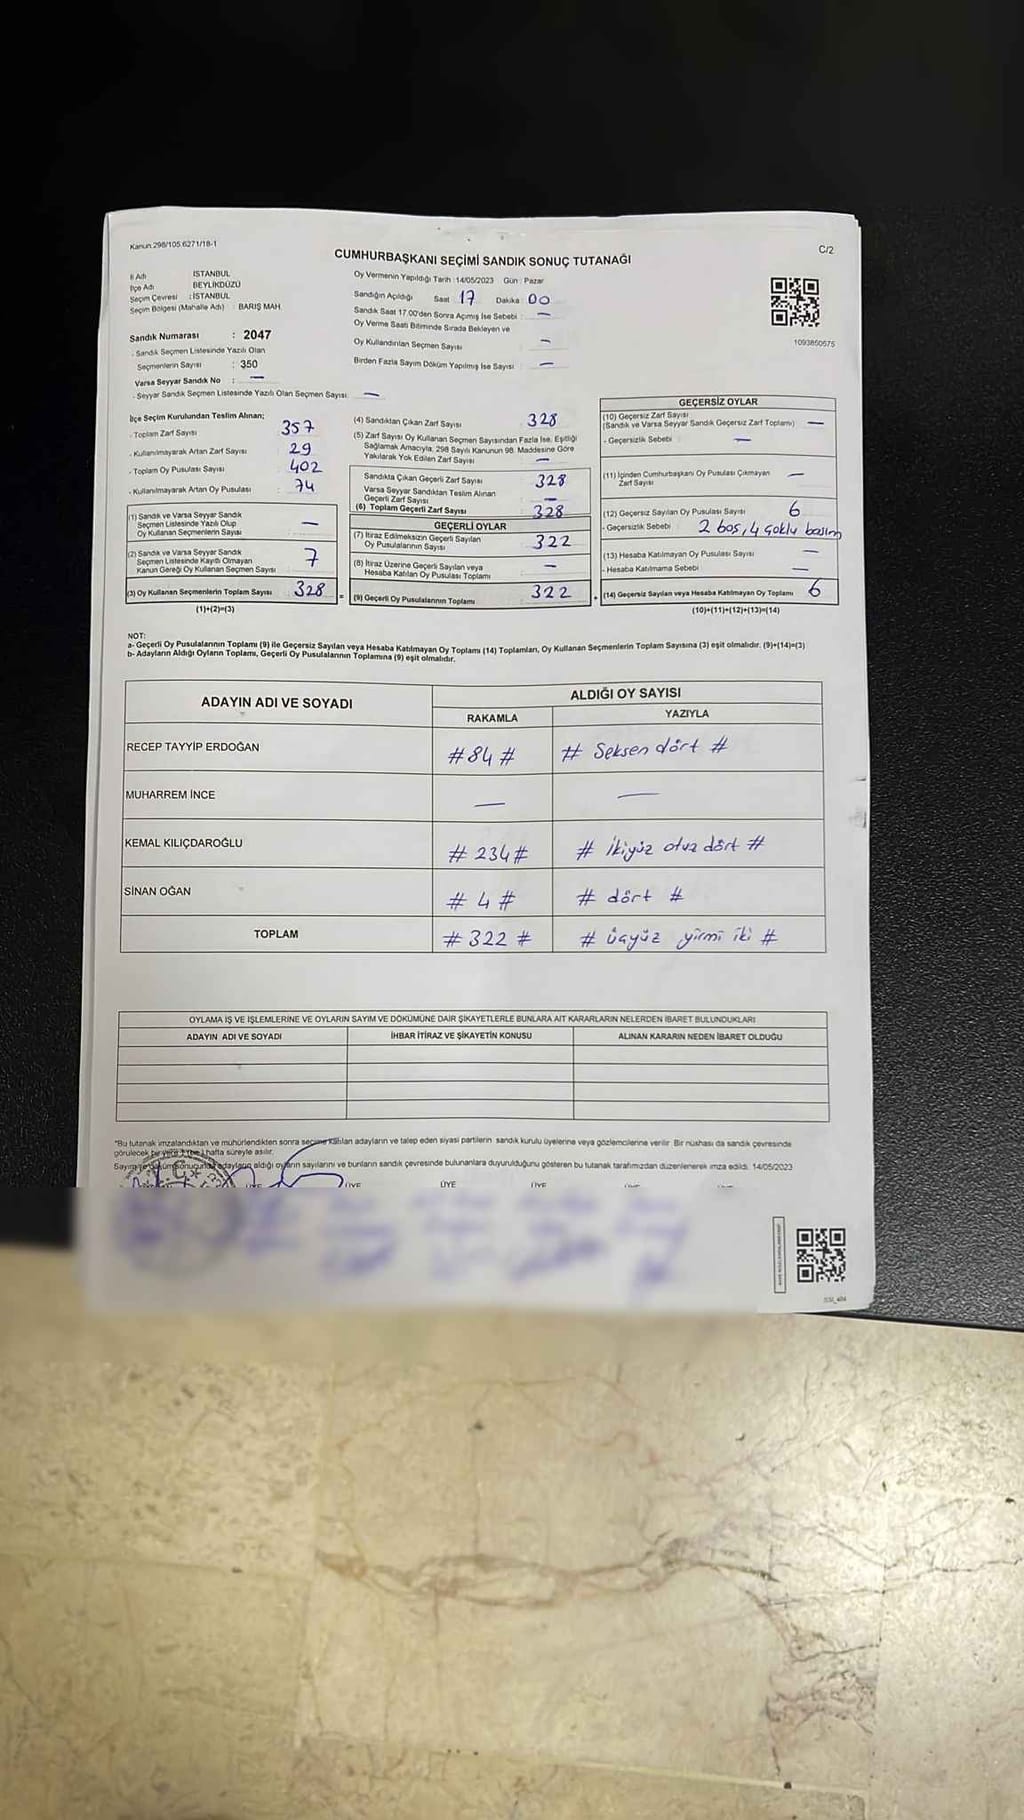 Kanun 298/105 6271/18-1
C/2
CUMHURBAŞKANI SEÇİMİ SANDIK SONUÇ TUTANAĞI
İl Adı İSTANBUL
İlçe Adı BEYLİKDÜZÜ
Seçim Çevresi : İSTANBUL
Seçim Bölgesi (Mahalle Adı) : BARIŞ MAH.
Sandık Numarası : 2047
- Sandık Seçmen Listesinde Yazılı Olan
Seçmenlerin Sayısı : 350
Varsa Seyyar Sandık No : —
- Seyyar Sandık Seçmen Listesinde Yazılı Olan Seçmen Sayısı: —
Oy Vermenin Yapıldığı Tarih :14/05/2023 Gün : Pazar
Sandığın Açıldığı Saat 17 Dakika 00
Sandık Saat 17.00'den Sonra Açımış İse Sebebi : —
Oy Verme Saati Bitiminde Sırada Bekleyen ve
Oy Kullandırılan Seçmen Sayısı —
Birden Fazla Sayım Döküm Yapılmış İse Sayısı : —
1093850575
İlçe Seçim Kurulundan Teslim Alınan;
- Toplam Zarf Sayısı 357
- Kullanılmayarak Artan Zarf Sayısı 29
- Toplam Oy Pusulası Sayısı 402
- Kullanılmayarak Artan Oy Pusulası : 74
(1) Sandık ve Varsa Seyyar Sandık
Seçmen Listesinde Yazılı Olup
Oy Kullanan Seçmenlerin Sayısı —
(2) Sandık ve Varsa Seyyar Sandık
Seçmen Listesinde Kayıtlı Olmayan
Kanun Gereği Oy Kullanan Seçmen Sayısı 7
(3) Oy Kullanan Seçmenlerin Toplam Sayısı 328
(1)+(2)=(3)
=
(4) Sandıktan Çıkan Zarf Sayısı 328
(5) Zarf Sayısı Oy Kullanan Seçmen Sayısından Fazla İse, Eşitliği
Sağlamak Amacıyla, 298 Sayılı Kanunun 98. Maddesine Göre
Yakılarak Yok Edilen Zarf Sayısı —
Sandıkta Çıkan Geçerli Zarf Sayısı 328
Varsa Seyyar Sandıktan Teslim Alınan
Geçerli Zarf Sayısı —
(6) Toplam Geçerli Zarf Sayısı 328
GEÇERLİ OYLAR
(7) İtiraz Edilmeksizin Geçerli Sayılan
Oy Pusulalarının Sayısı 322
(8) İtiraz Üzerine Geçerli Sayılan veya
Hesaba Katılan Oy Pusulası Toplamı —
(9) Geçerli Oy Pusulalarının Toplamı 322
+
GEÇERSİZ OYLAR
(10) Geçersiz Zarf Sayısı
(Sandık ve Varsa Seyyar Sandık Geçersiz Zarf Toplamı) —
- Geçersizlik Sebebi —
(11) İçinden Cumhurbaşkanı Oy Pusulası Çıkmayan
Zarf Sayısı —
(12) Geçersiz Sayılan Oy Pusulası Sayısı 6
- Geçersizlik Sebebi 2 boş, 4 çoklu basım
(13) Hesaba Katılmayan Oy Pusulası Sayısı —
- Hesaba Katılmama Sebebi —
(14) Geçersiz Sayılan veya Hesaba Katılmayan Oy Toplamı 6
(10)+(11)+(12)+(13)=(14)
NOT:
a- Geçerli Oy Pusulalarının Toplamı (9) ile Geçersiz Sayılan veya Hesaba Katılmayan Oy Toplamı (14) Toplamları, Oy Kullanan Seçmenlerin Toplam Sayısına (3) eşit olmalıdır. (9)+(14)=(3)
b- Adayların Aldığı Oyların Toplamı, Geçerli Oy Pusulalarının Toplamına (9) eşit olmalıdır.
ADAYIN ADI VE SOYADI ALDIĞI OY SAYISI
RAKAMLA YAZIYLA
RECEP TAYYİP ERDOĞAN #84# # Seksen dört #
MUHARREM İNCE — —
KEMAL KILIÇDAROĞLU #234# # ikiyüz otuz dört #
SİNAN OĞAN #4# # dört #
TOPLAM #322# # üçyüz yirmi iki #
OYLAMA İŞ VE İŞLEMLERİNE VE OYLARIN SAYIM VE DÖKÜMÜNE DAİR ŞİKAYETLERLE BUNLARA AİT KARARLARIN NELERDEN İBARET BULUNDUKLARI
ADAYIN ADI VE SOYADI İHBAR İTİRAZ VE ŞİKAYETİN KONUSU ALINAN KARARIN NEDEN İBARET OLDUĞU
*Bu tutanak imzalandıktan ve mühürlendikten sonra seçime katılan adayların ve talep eden siyasi partilerin sandık kurulu üyelerine veya gözlemcilerine verilir. Bir nüshası da sandık çevresinde
görülecek bir yere 1 (bir) hafta süreyle asılır.
Sayım ve döküm sonucunda adayların aldığı oyların sayılarını ve bunların sandık çevresinde bulunanlara duyurulduğunu gösteren bu tutanak tarafımızdan düzenlenerek imza edildi. 14/05/2023
ÜYE ÜYE ÜYE